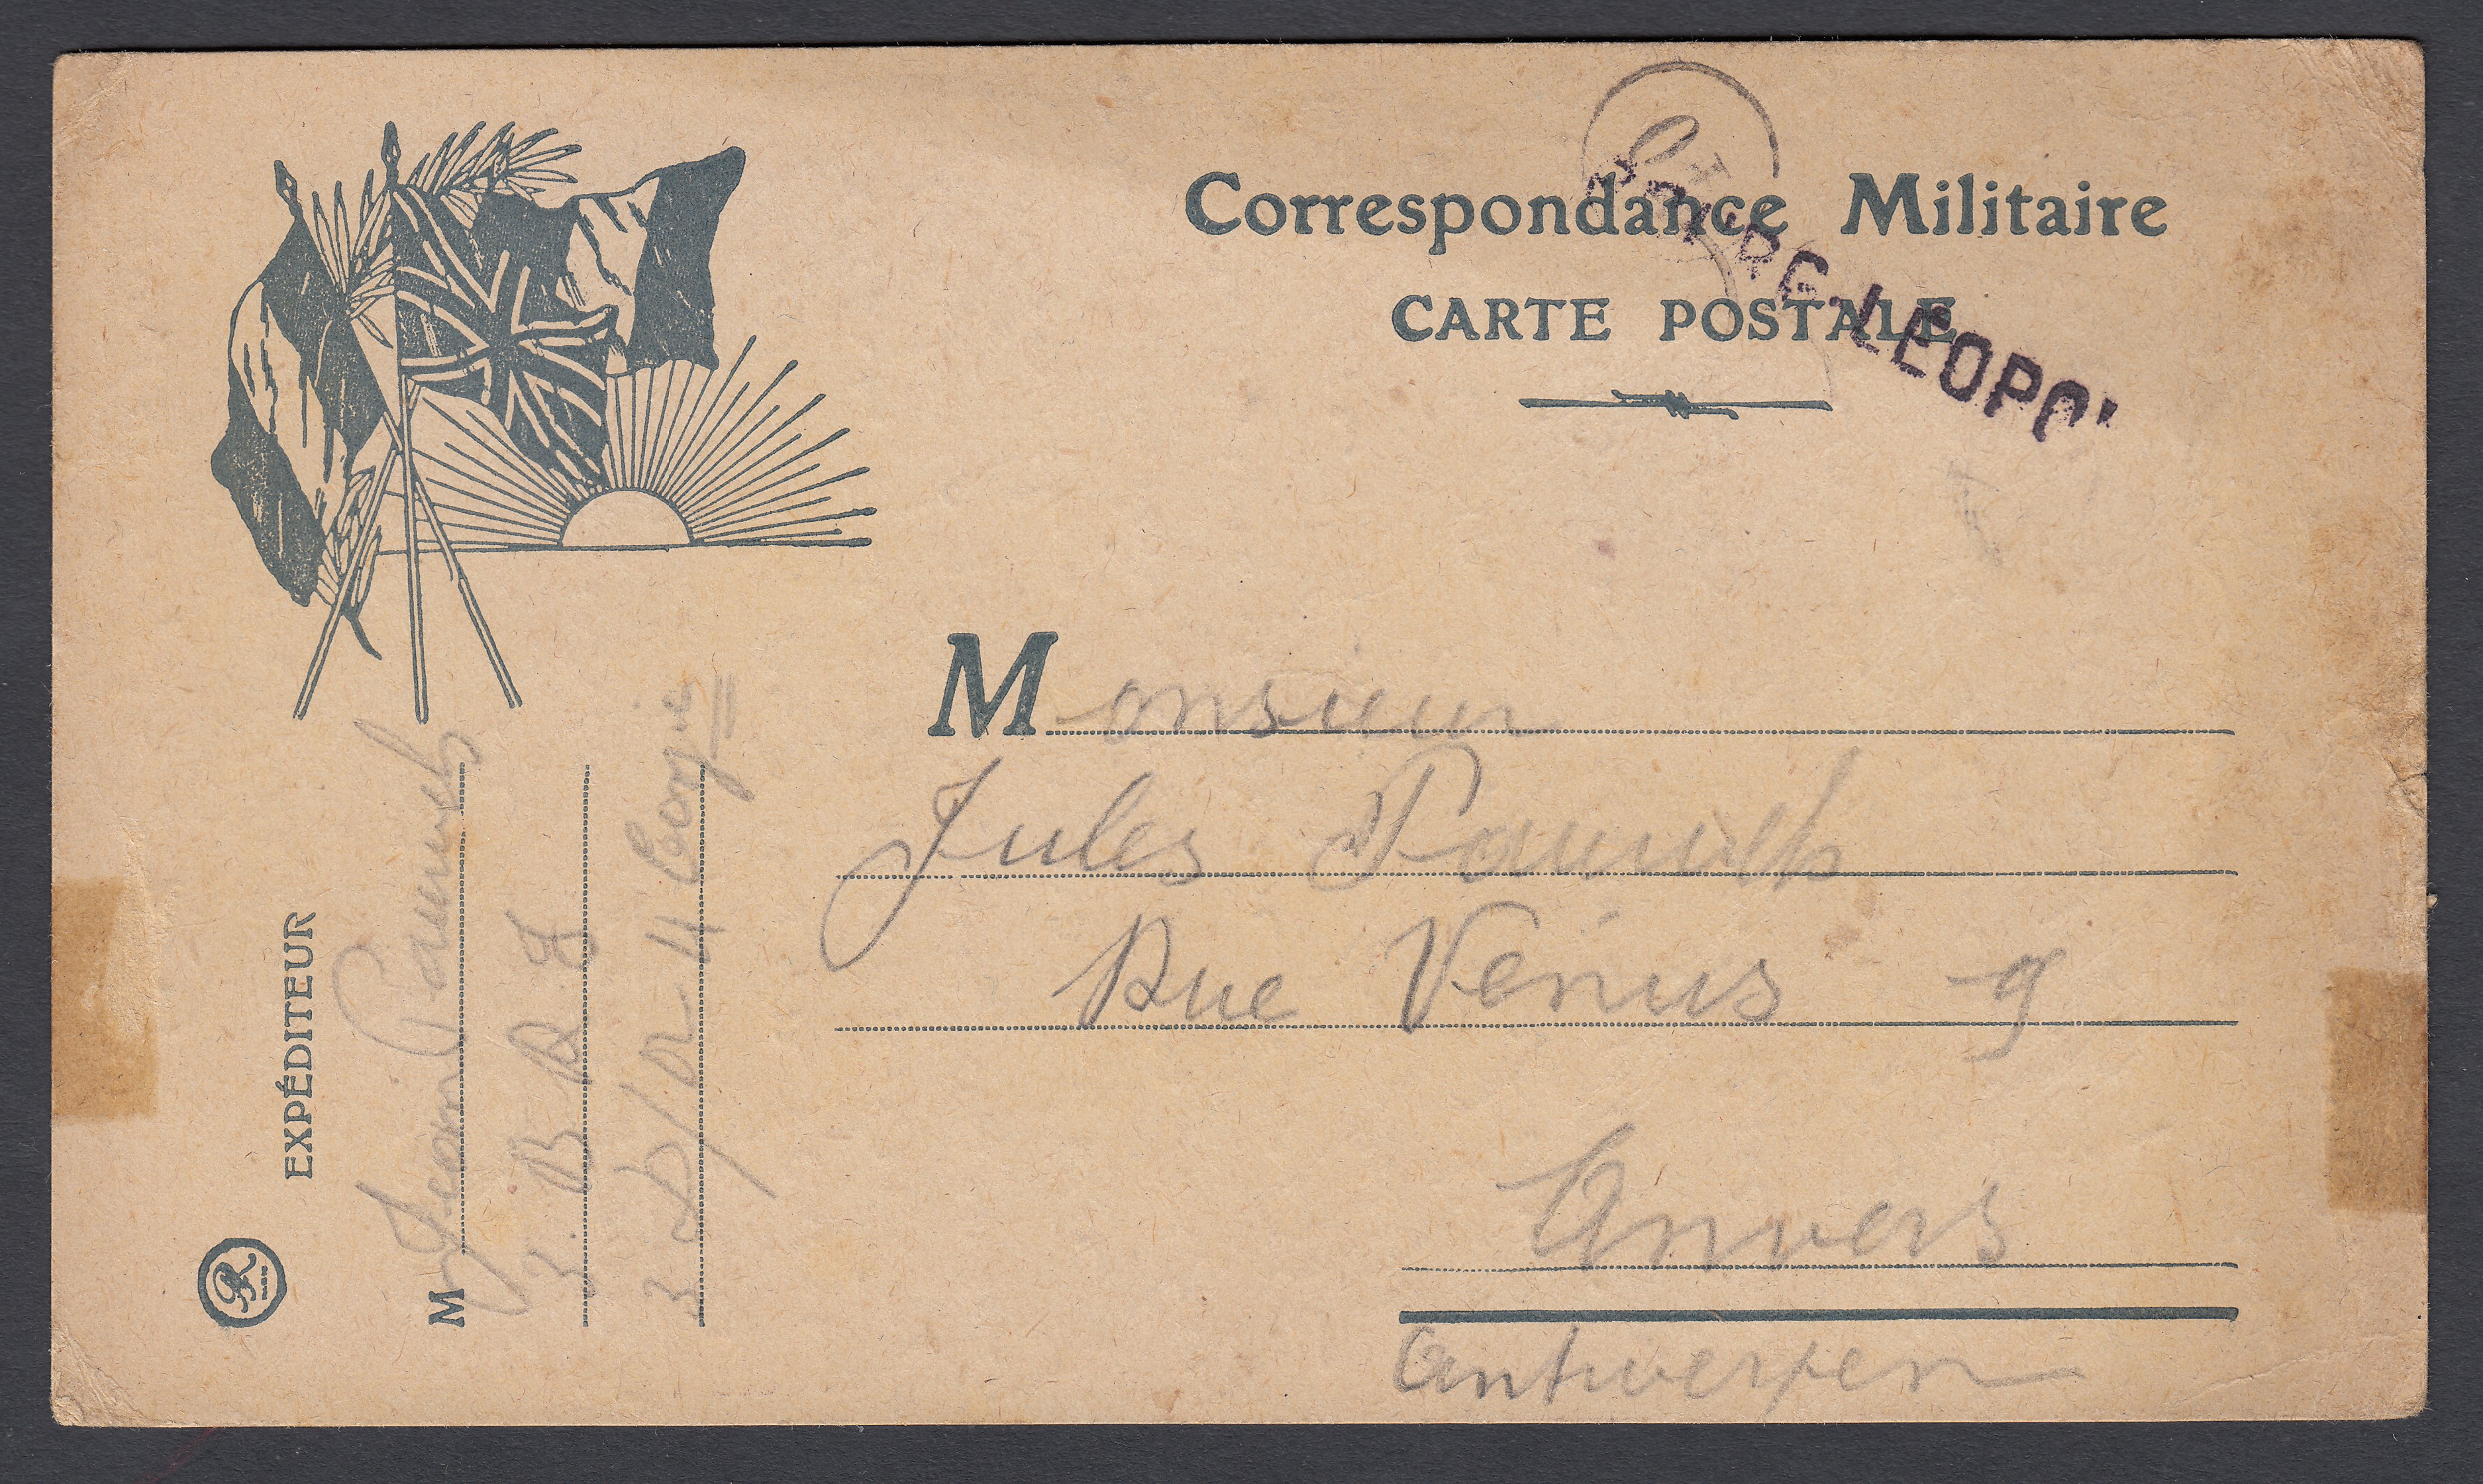 Correspondance Militaire
CARTE POSTALE
LÉOPO
Monsieur
Jules Pauwels
Rue Vénus 9
Anvers
Antwerpen
EXPÉDITEUR
M Jean Pauwels
3. B. R. I
3 D/A 4 Corjie